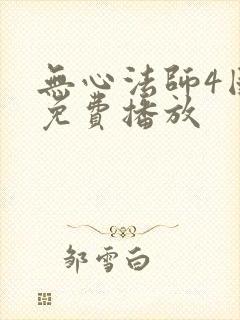 無心法師4
免費播放
邹雪白